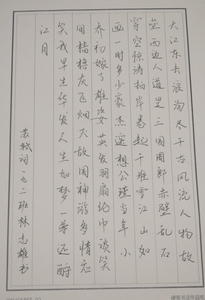 大江东去浪淘尽千古风流人物故
垒西边人道是三国周郎赤壁乱石
穿空惊涛拍岸卷起千堆雪江山如
画一时多少豪杰遥想公瑾当年小
乔初嫁了雄姿英发羽扇纶巾谈笑
间樯橹灰飞烟灭故国神游多情应
笑我早生华发人生如梦一尊还酹
江月
苏轼词一九二班林志雄书